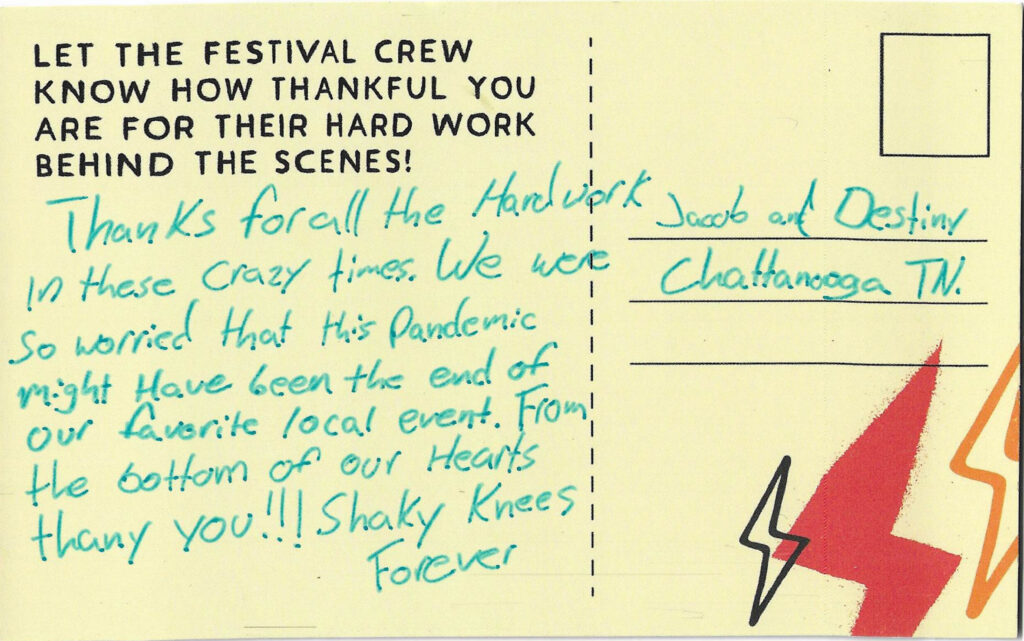 LET THE FESTIVAL CREW
KNOW HOW THANKFUL YOU
ARE FOR THEIR HARD WORK
BEHIND THE SCENES!
Thanks for all the Hardwork
in these crazy times. We were
so worried that this Pandemic
might Have been the end of
our favorite local event. From
the bottom of our Hearts
thany you!!! Shaky Knees
Forever
Jacob and Destiny
Chattanooga TN.